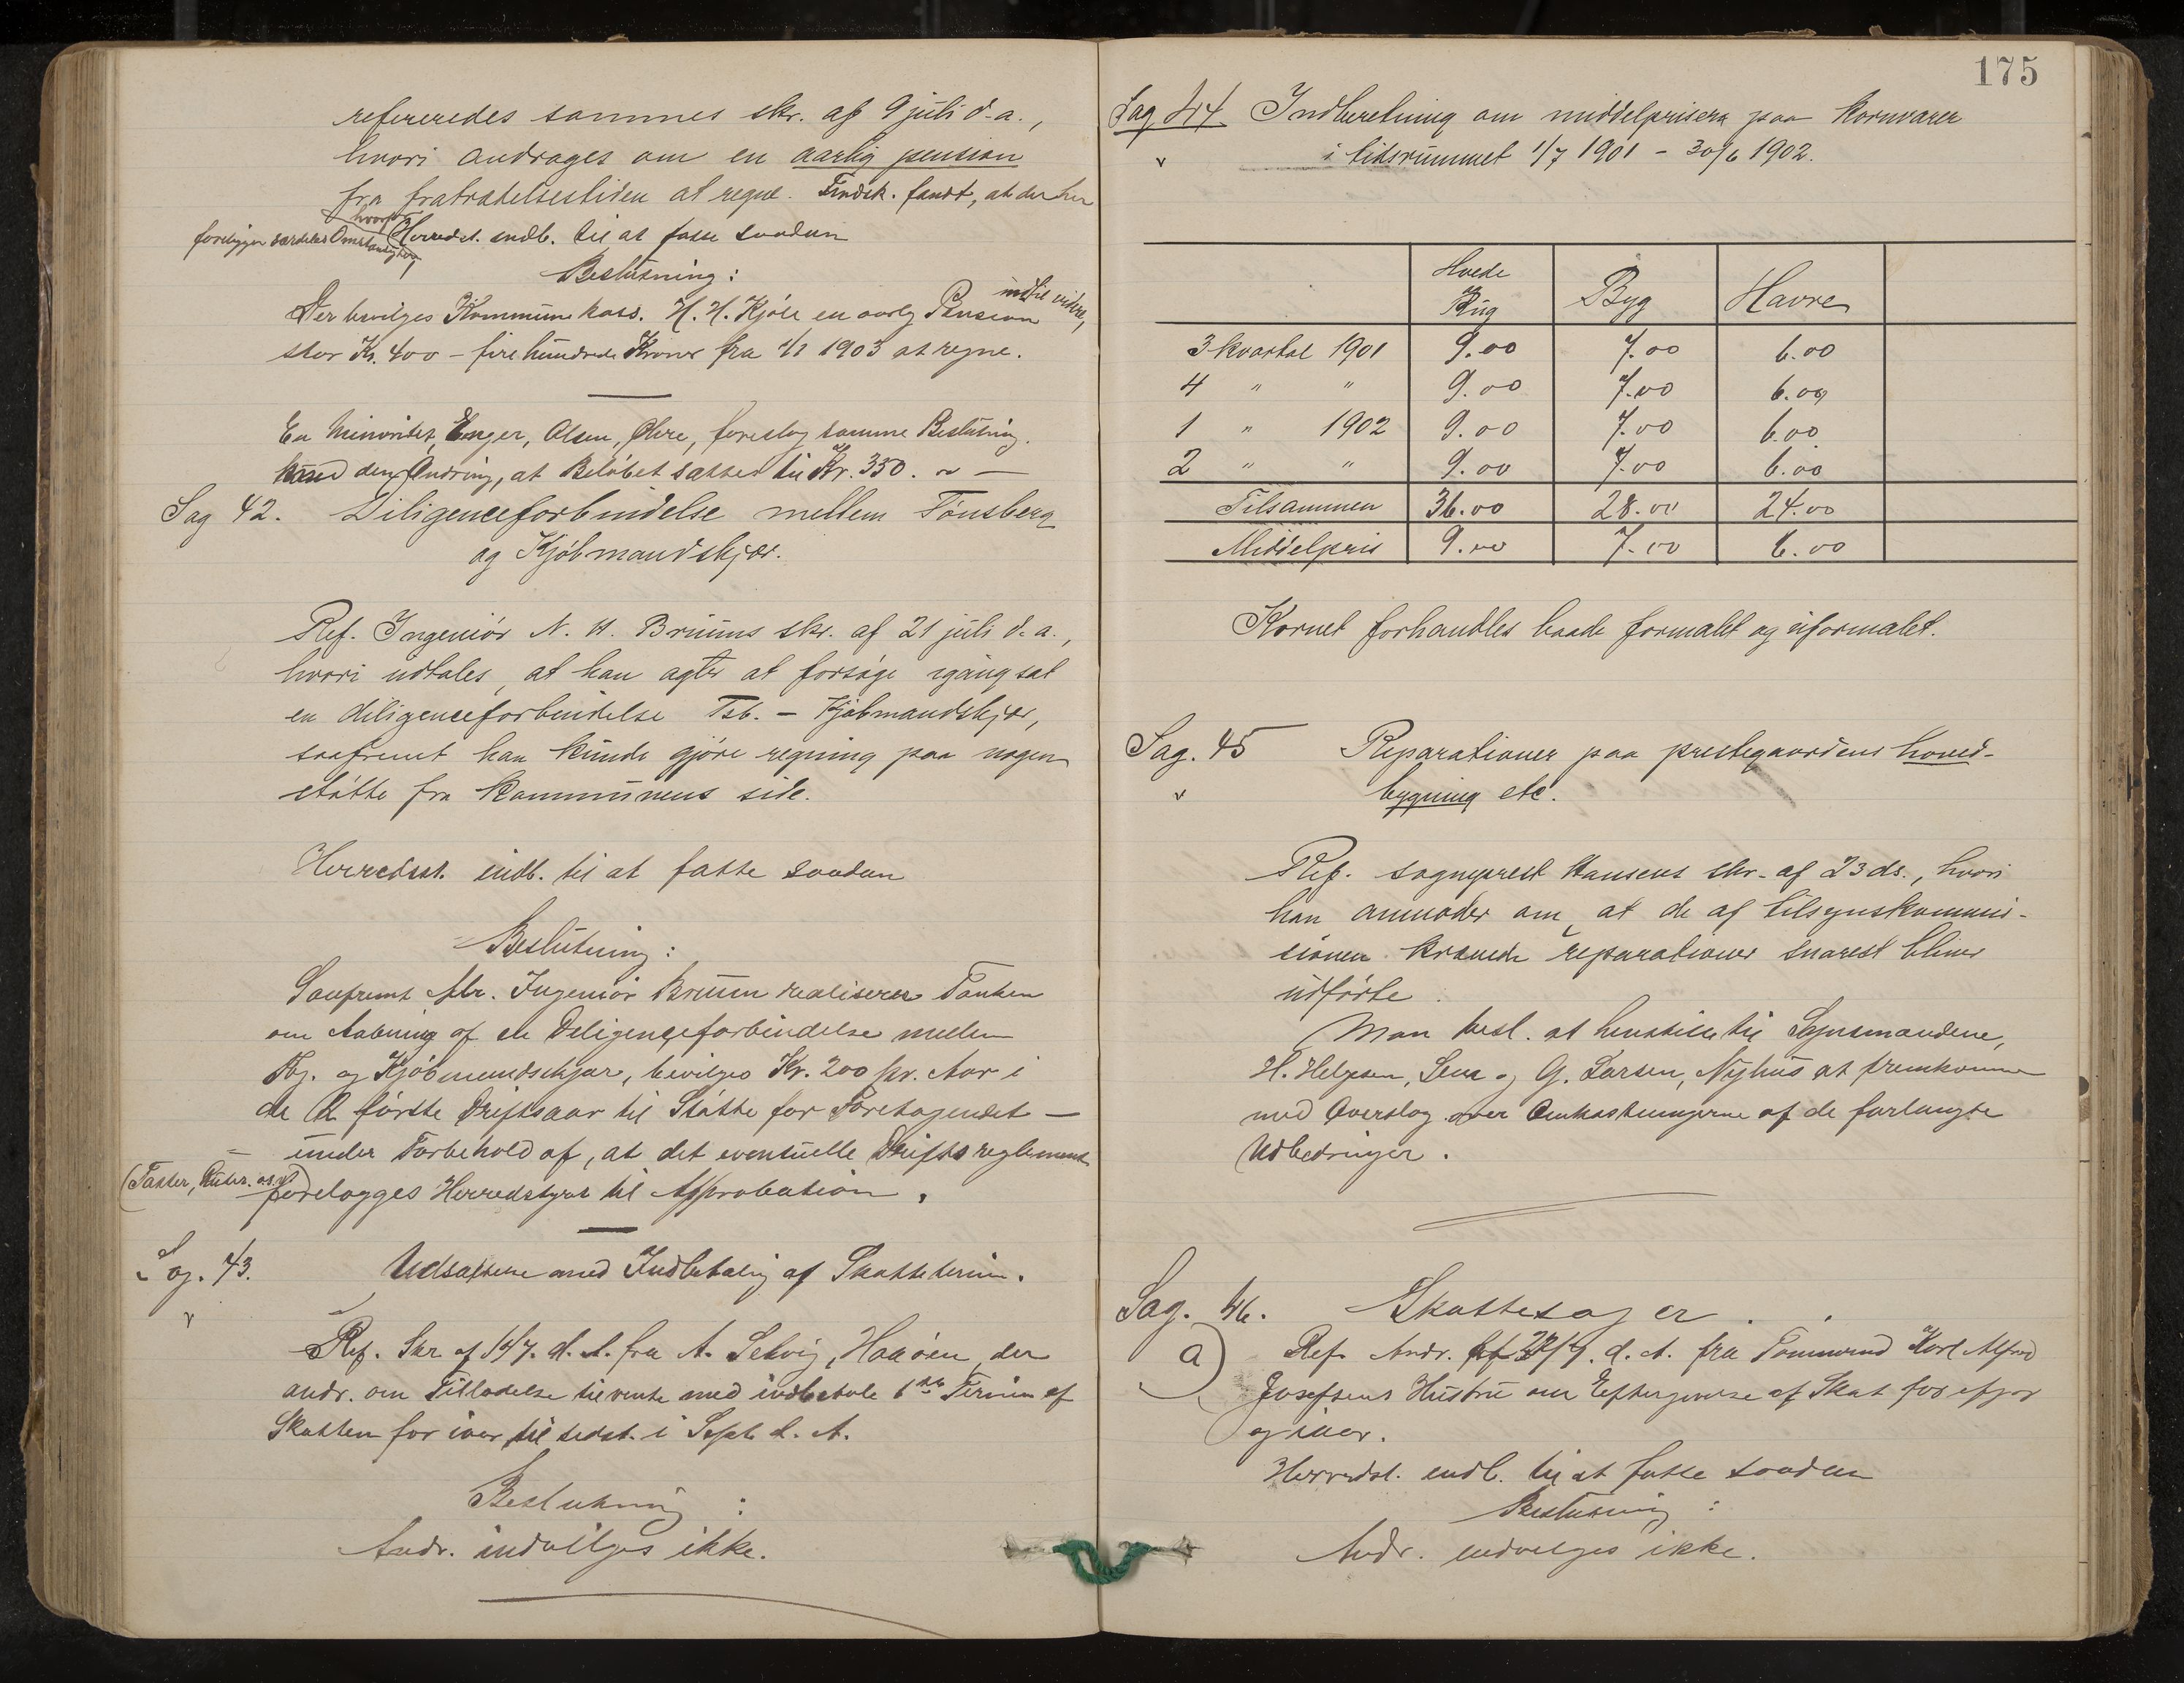 refereredes sammes skr. af 9 juli d.a.,
hvori andrages om en aarlig pension
fra fratrædelsestiden at regne. Findsk. fandt, at der her
foreligger særdeles Omstændigheder, hvorfor Herredst. indb. til at fatte saadan
Beslutning:
Der bevilges Kommunekass. H. H. Kjøle en aarlig Pension indtil videre,
stor Kr. 400 – fire hundrede Kroner fra 1/1 1903 at regne.
En Minoritet, Enger, Olsen, Øhre, foreslog samme Beslutning
med den Ændring, at Beløbet sættes til Kr. 350. –
Sag 42. Diligenceforbindelse mellem Tønsberg
og Kjøbmandskjær.
Ref. Ingeniør N. A. Bruuns skr. af 21 juli d.a.,
hvori udtales, at han agter at forsøge igangsat
en diligenceforbindelse Tsb. – Kjøbmandskjær,
saafremt han kunde gjøre regning paa nogen
støtte fra kommunens side.
Herredsst. indb. til at fatte saadan
Beslutning:
Saafremt Hr. Ingeniør Bruun realiserer Tanken
om Aabning af en Diligenceforbindelse mellem
Tbg. og Kjøbmandskjær, bevilges Kr. 200 pr. Aar i
de 2 første Driftsaar til Støtte for Foretagendet –
under Forbehold af, at det eventuelle Driftsreglement
(Takster, Ruter. osv) forelægges Herredsstyret til Approbation.
Sag. 43. Udsættelse med Indbetaling af Skattetermin.
Ref. Skr. af 14/7. d. A. fra A. Selvig, Haaøen, der
andr. om Tilladelse til vente med indbetale 1ste Termin af
Skatten for iaar til sidst. i Sept. d. A.
Beslutning:
Andr. indvilges ikke.
175
Sag 44 Indberetning om middelprisen paa kornvarer
i tidsrummet 1/7 1901 – 30/6 1902.
Hvede og Rug Byg Havre
3 kvartal 1901 9.00 7.00 6.00
4 " " 9.00 7.00 6.00
1 " 1902 9.00 7.00 6.00
2 " " 9.00 7.00 6.00
Tilsammen 36.00 28.00 24.00
Middelpris 9.00 7.00 6.00
Kornet forhandles baade formalet og uformalet.
Sag. 45 Reparationer paa prestegaardens hoved-
bygning etc.
Ref. sogneprest Hansens skr. af 23 ds., hvori
han anmoder om, at de af tilsynskommis-
sionen krævede reparationer snarest bliver
udførte.
Man besl. at henstille til Synsmændene,
H. Helgesen, Sem og G. Larsen, Nyhus at fremkomme
med Overslag over Omkostningerne af de forlangte
Udbedringer.
Sag. 46. Skattesager.
a) Ref. Andr. af 28/7. d. A. fra Tømmermd Karl Alfred
Josefsens Hustru om Eftergivelse af Skat for ifjor
og iaar.
Herredst. indb. til at fatte saadan
Beslutning:
Andr. indvilges ikke.